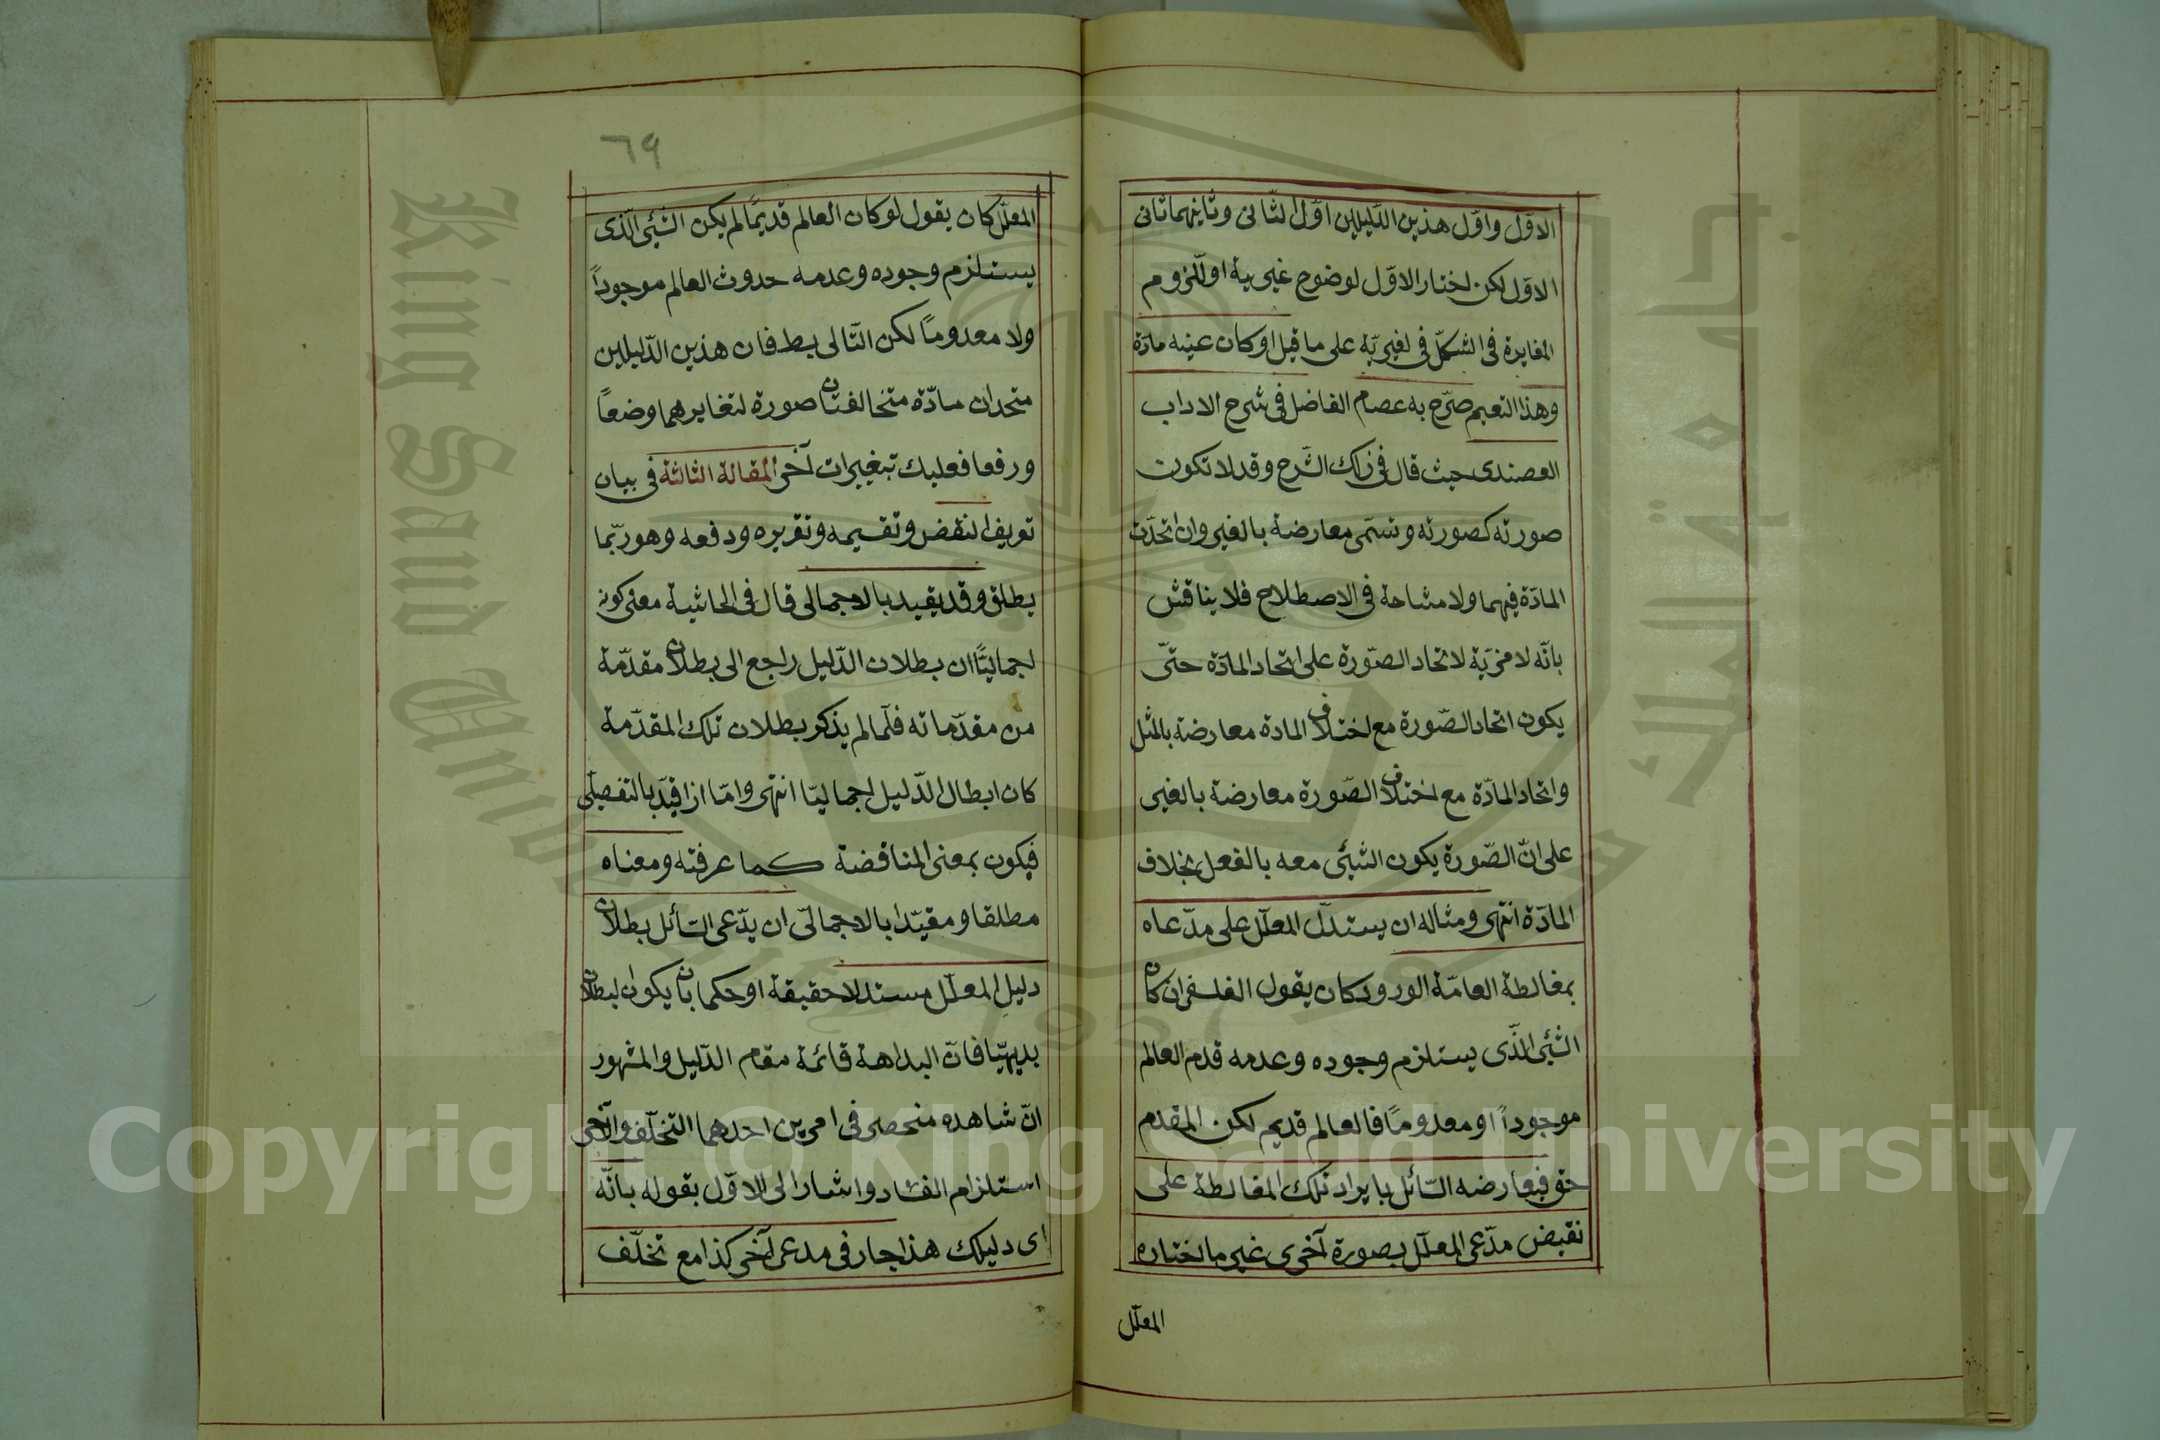 الاوّل واوّل هذين الدّليلين اوّل الثّانى وثانيهما ثانى
الاوّل لكن اختار الاوّل لوضوح غيرية اوّللزوم
المغايرة فى الشكل فى لغيريّة على ما قيل اوكان عينه مادّة
وهذا التعميم صرّح به عصام الفاضل فى شرح الاداب
العضندى حيث قال فى ذلك الشّرح وقد لا تكون
صورته كصورته وتسمّى معارضة بالغير وان اتحدّت
المادّة فيهما ولا مشاحة فى الاصطلاح فلا يناقش
بانّه لا مزيّة لاتحاد الصّورة على اتحاد المادّة حتّى
يكون اتحاد الصّورة مع اختلاف المادة معارضة بالمثل
واتحاد المادّة مع اختلاف الصّورة معارضة بالغير
على انّ الصّورة يكون الشيئ معه بالفعل بخلاف
المادّة انتهى ومثاله ان يستدلّ المعلّل على مدّعاه
بمغالطة العامّة الورود كان يقول الفلسفى ان كان
الشيئ الّذى يستلزم وجوده وعدمه قدم العالم
موجوداً او معدومًا فالعالم قديم لكن المقدم
حق فيعارضه السّائل بايراد تلك المغالطة على
نقيض مدّعى المعلّل بصورة آخرى غير ما اختاره
المعلّل
٦٩
المعلّل كان يقول لو كان العالم قديمًا لم يكن الشيئ الّذى
يستلزم وجوده وعدمه حدوث العالم موجوداً
ولا معدومًا لكن التّالى بط فان هذين الدّليلين
متحدان مادّة متخالفتان صورة لتغايرهما وضعاً
ورفعا فعليك تبغييرات آخر المقالة الثالثة فى بيان
تعريف النقض وتقسيمه وتقريره ودفعه وهو ربّما
يطلق وقد يقيد بالاجمالى قال فى الحاشية معنى كونه
اجماليّا ان بطلان الدّليل راجع الى بطلان مقدّمة
من مقدّماته فلّما لم يذكر بطلان تلك المقدّمة
كان ابطال الدّليل اجماليّا انتهى وامّا اذا قيّد بالتفصيلّى
فيكون بمعنى المناقضة كما عرفته ومعناه
مطلقا ومقيّدا بالاجمالىّ ان يدّعى السّائل بطلان
دليل المعلّل مستدلا حقيقة او حكما بان يكون البطلان
بديهيّا فانّ البداهة قائمة مقام الدّليل والمشهور
انّ شاهده منحصر فى امرين احدهما التخلّف والآخر
استلزام الفساد واشار الى الاوّل بقوله بانّه
اى دليلك هذا جار فى مدعى آخر كذا مع تخلّف
King Saud University
Copyright © King Saud University
جامعة الملك سعود
1957